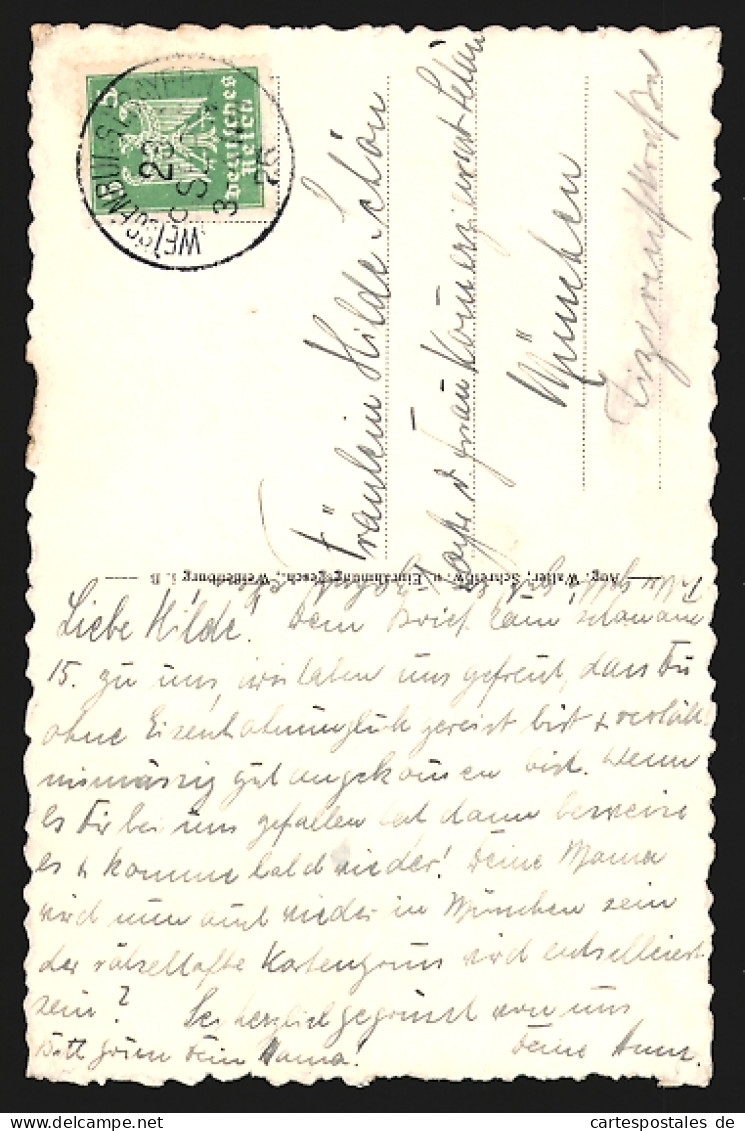 Deutsches
Reich
5
WEISSENBURG I. BAYERN
23
SEP
3
26
Fräulein Hilde Schön
München
Aug. Walter, Schreibw. u. Einrahmungsgesch., Weißenburg i. B
Liebe Hilde! Dein Brief kam schon am
15. zu uns, wir haben uns gefreut, dass Du
ohne Eisenbahnunglück gereist bist & verhält-
nismässig gut angekommen bist. Wenn
es Dir bei uns gefallen hat dann beweise
es & komme bald wieder! Deine Mama
wird nun auch wieder in München sein
der rätselhafte Kartengruss wird entschleiert
sein? Sei herzlich gegrüsst von uns
Bitte grüsse Dein Mama! Deine
cartespostales de
www.cartespostales.de